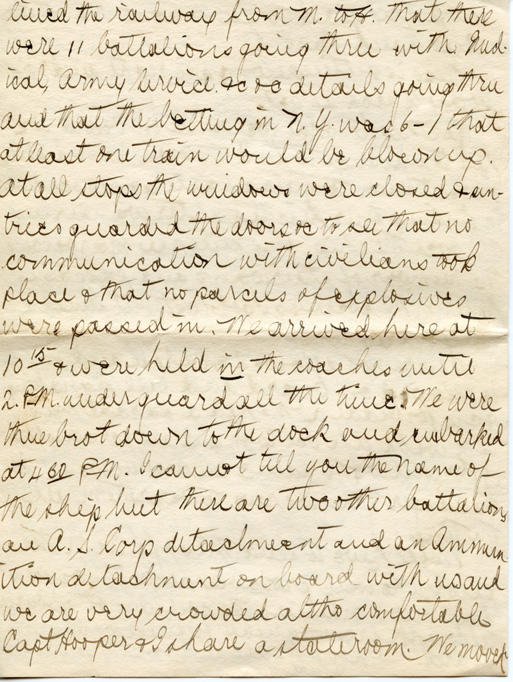 lined the railway from M. to H. that there
were 11 battalions going thru with Med-
ical, Army Service &c &c details going thru
and that the betting in N.Y. was 6-1 that
at least one train would be blown up.
At all stops the windows were closed & sen-
tries guarded the doors &c to see that no
communication with civilians took
place & that no parcels of explosives
were passed in. We arrived here at
10 15 & were held in the coaches until
2. P.M. under guard all the time. We were
then brot down to the dock and embarked
at 4 60 P.M. I cannot tell you the name of
the ship but there are two other battalions
an A. S. Corp detachment and an Ammun
ition detachment on board with us and
we are very crowded altho comfortable
Capt Hooper & I share a stateroom. We move